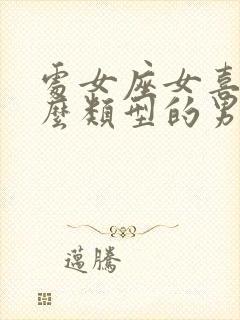 處女座女喜
麼類型的男
邁騰